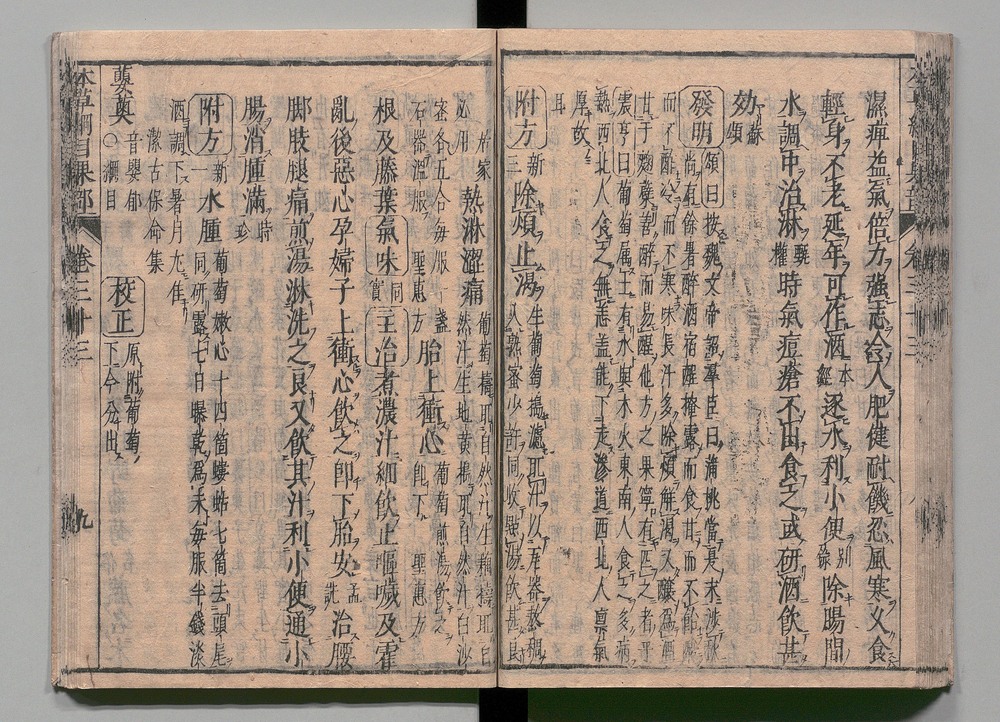 濕痺益氣倍力強志令人肥健耐饑忍風寒久食
輕身不老延年可作酒本經逐水利小便別錄除腸間
水調中治淋甄權時氣痘瘡不出食之或研酒飲甚
効蘇頌
發明頌曰按魏文帝詔羣臣曰蒲桃當夏末涉秋
尚有餘暑醉酒宿醒掩露而食甘而不飴
而不酢冷而不寒味長汁多除煩解渴又釀為酒
甘于麴蘗善醉而易醒他方之果寧有匹之者乎
震亨曰葡萄属土有水與木火東南人食之多病
熱西北人食之無恙盖能下走滲道西北人禀氣
厚故耳
附方新三除煩止渴生葡萄搗濾取汁以瓦器熬稠
入熟蜜少許同收點湯飲甚良
熱淋澀痛葡萄搗取自然汁生藕搗取自
然汁生地黄搗取自然汁白沙
蜜各五合每服一盞石器溫服聖惠方胎上衝心葡萄煎湯飲之
即下聖惠方
根及藤葉氣味同實主治煮濃汁細飲止嘔噦及霍
亂後惡心孕婦子上衝心飲之即下胎安孟詵治腰
脚肢腿痛煎湯淋洗之良又飲其汁利小便通小
腸消腫滿時珍
附方新一水腫葡萄嫩心十四箇螻蛄七箇去頭尾
同研露七日曝乾爲末每服半錢淡
酒調下暑月尤佳
潔古保命集
蘡薁音嬰郁○綱目校正原附葡萄下今分出
本草綱目果部卷三十三九